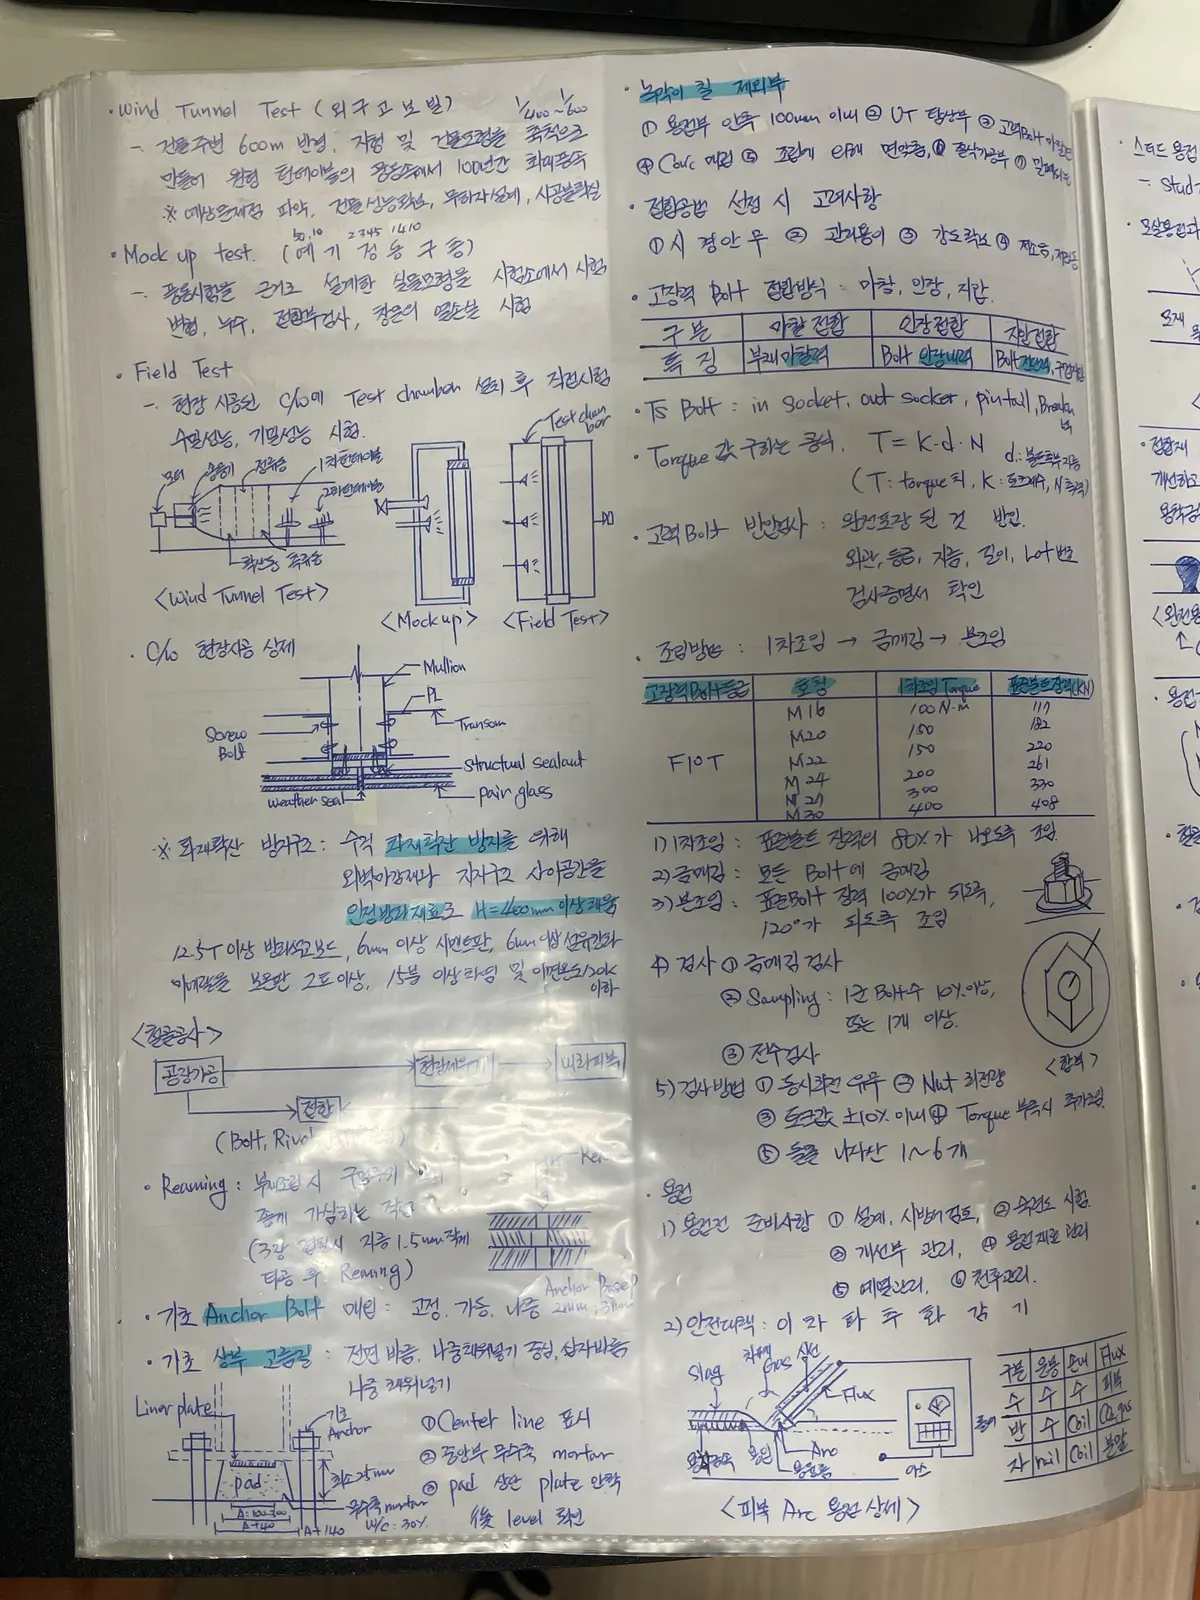 · Wind Tunnel Test (외구고모빌) 1/400~1/600
- 건물주변 600m 반경, 지형 및 건물모형을 축척으로
만들어 원형 턴테이블의 풍동속에서 100년간 최대풍속
※ 예상문제점 파악, 건물성능확보, 무하자설계, 시공불확실
50,10 2345 1410
· Mock up test. (예기정농구층)
- 풍동시험을 근거로 설계한 실물모형을 시험소에서 시험
변형, 누수, 접합부검사, 창문의 열손실 시험
· Field Test
- 현장 시공된 C/W에 Test chamber 설치 후 직접시험
수밀성능, 기밀성능 시험.
모터 송풍기 정류통 1차턴테이블
2차턴테이블
확산통 축류통
<Wind Tunnel Test>
<Mock up>
Test cham
bar
<Field Test>
· C/W 현장시공 상세
Mullion
PL
Transom
Screw
Bolt
structual sealant
pair glass
weather seal
※ 화재확산 방지구조 : 수직 화재확산 방지를 위해
외벽마감재와 지지구조 사이공간을
인정방화재료로 H=400mm 이상 채움
12.5T 이상 방화석고보드, 6mm 이상 시멘트판, 6mm 이상 섬유강화
미네랄울 보온판 2호이상, 15분 이상 차열 및 이면온도 120K
이하
<철골공사>
공장가공 현장세우기 내화피복
접합
(Bolt, Rivet
· Reaming : 부재조립시 구멍주위
(3장 겹칠시 지름 1.5mm 작게
타공 후 Reming)
Anchor Base P
2mm, 3mm
· 기초 Anchor Bolt 매립 : 고정, 가동, 나중
· 기초 상부 고름질 : 전면 바름, 나중채워넣기 중심, 십자바름
나중 채워넣기
Liner plate
기초
Anchor
pad
최소 25mm
무수축 mortar
W/C : 30%
A=100~200
A+40
A+140
① Center line 표시
② 중앙부 무수축 mortar
③ pad 상단 plate 안착
後 level 확인
· 녹막이 칠 제외부
① 용접부 양측 100mm 이내 ② UT 탐상부 ③ 고력Bolt 마찰면
④ Conc 매립 ⑤ 조립에 의해 면맞춤, ⑥ 절삭가공부 ⑦ 밀폐되는
· 접합공법 선정 시 고려사항
① 시 경 안 무 ② 관리용이 ③ 강도확보 ④ 저소음, 저진동
· 고장력 Bolt 접합방식 : 마찰, 인장, 지압.
구 분 마찰 접합 인장접합 지압접합
특 징 부재 마찰력 Bolt 인장내력 Bolt 전단력, 구멍지압
· TS Bolt : in socket, out socker, pintail, Breaknek
· Torque 값 구하는 공식, T = K·d·N d:볼트호부지름
(T : torque치, K : 토크계수, N 축력)
· 고력 Bolt 반입검사 : 완전포장 된 것 반입.
외관, 등급, 지름, 길이, Lot 번호
검사증명서 확인
· 조임방법 : 1차조임 → 금매김 → 본조임
고장력Bolt등급 호칭 1차조임 Torque 표준볼트장력(KN)
F10T
M16 100 N·m 117
M20 150 182
M22 150 220
M24 200 261
M27 300 330
M30 400 408
1) 1차조임 : 표준볼트 장력의 80%가 나오도록 조임.
2) 금매김 : 모든 Bolt에 금매김
3) 본조임 : 표준Bolt 장력 100%가 되도록,
120°가 되도록 조임
4) 검사 ① 금매김 검사
② Sampling : 1군 Bolt수 10%이상,
또는 1개 이상.
③ 전수검사
<합격>
5) 검사방법 ① 동시회전 유무 ② Nut 회전량
③ 토크값 ±10% 이내 ④ Torque 부족시 추가조임.
⑤ 돌출 나사산 1~6개
· 용접
1) 용접전 준비사항 ① 설계, 시방서 검토, ② 숙련도 시험.
③ 개선부 관리, ④ 용접재료 관리
⑤ 예열관리, ⑥ 전류관리.
2) 안전대책 : 이 과 타 추 화 감 기
Slag 차폐
Gas 심선
Flux
Arc
용입
용융풀
어스
홀더
<피복 Arc 용접 상세>
구분 운봉 손내 Flux
수 수 수 피복
반 수 Coil CO2 gas
자 rail Coil 분말
· 스터드 용접
- Stud
모재
· 접합재
개선하고
용착금
<완전용
· 용접
· 철골